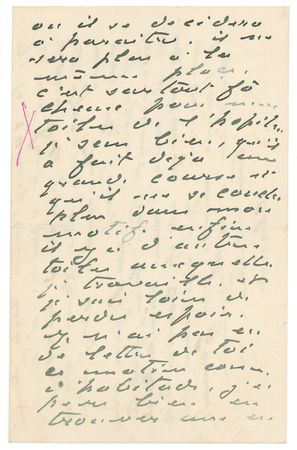 ou il se decidera
à paraitre. il ne
sera plus à la
même place,
c'est surtout fâ
cheux pour mes
toiles de l'hôpital
je sens bien, qu'il
a fait deja une
grande course et
qu'il ne se couche
plus dans mon
motif. enfin
il y a d'autres
toiles auxquelles
je travaille et
je suis loin de
perdre espoir.
je n'ai pas eu
de lettre de toi
ce matin comme
d'habitude, j'es
père bien en
trouver une en